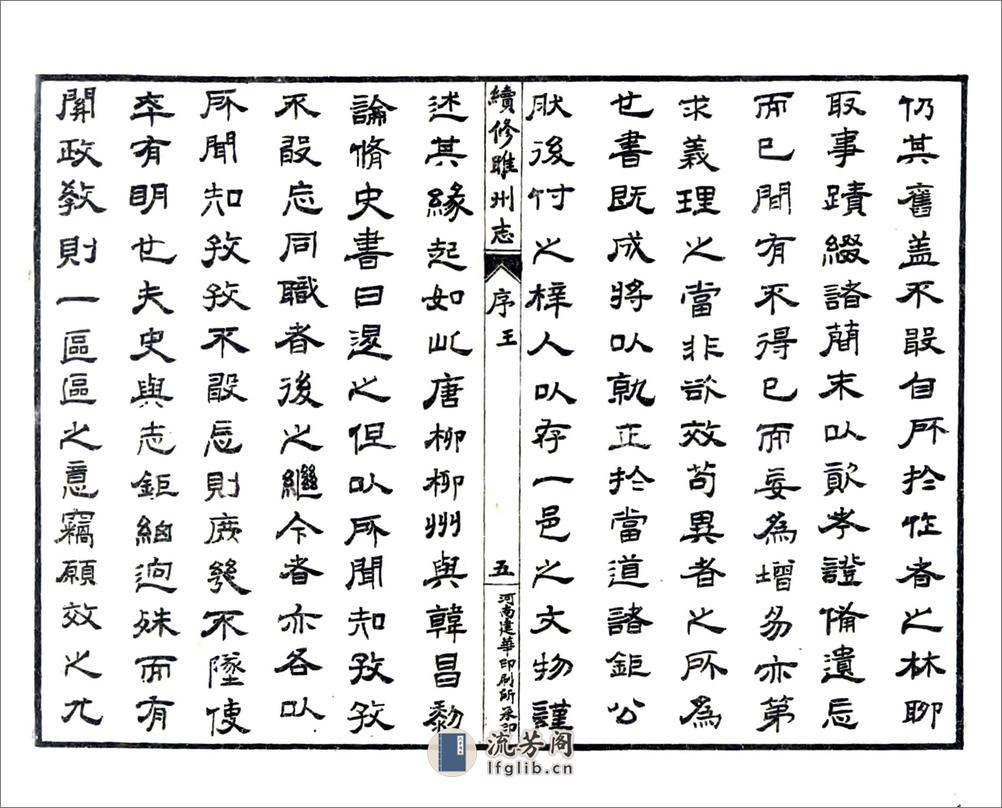 仍其舊盖不敢自所扵作者之林聊
取事蹟綴諸簡末以考證備遺忘
而已間有不得已而妄為增易亦第
求義理之當非欲效苟異者之所為
也書既成將以就正扵當道諸鉅公
肰後付之梓人以存一邑之文物謹
續修睢州志 序王 五 河南建華印刷所承印
述其緣起如此唐柳柳州與韓昌黎
論脩史書曰退之但以所聞知孜孜
不敢忘同職者後之繼今者亦各以
所聞知孜孜不敢忘則庶幾不墜使
卒有明也夫史與志鉅細逈殊而有
關政教則一區區之意竊願效之尤
流芳阁
lfglib.cn